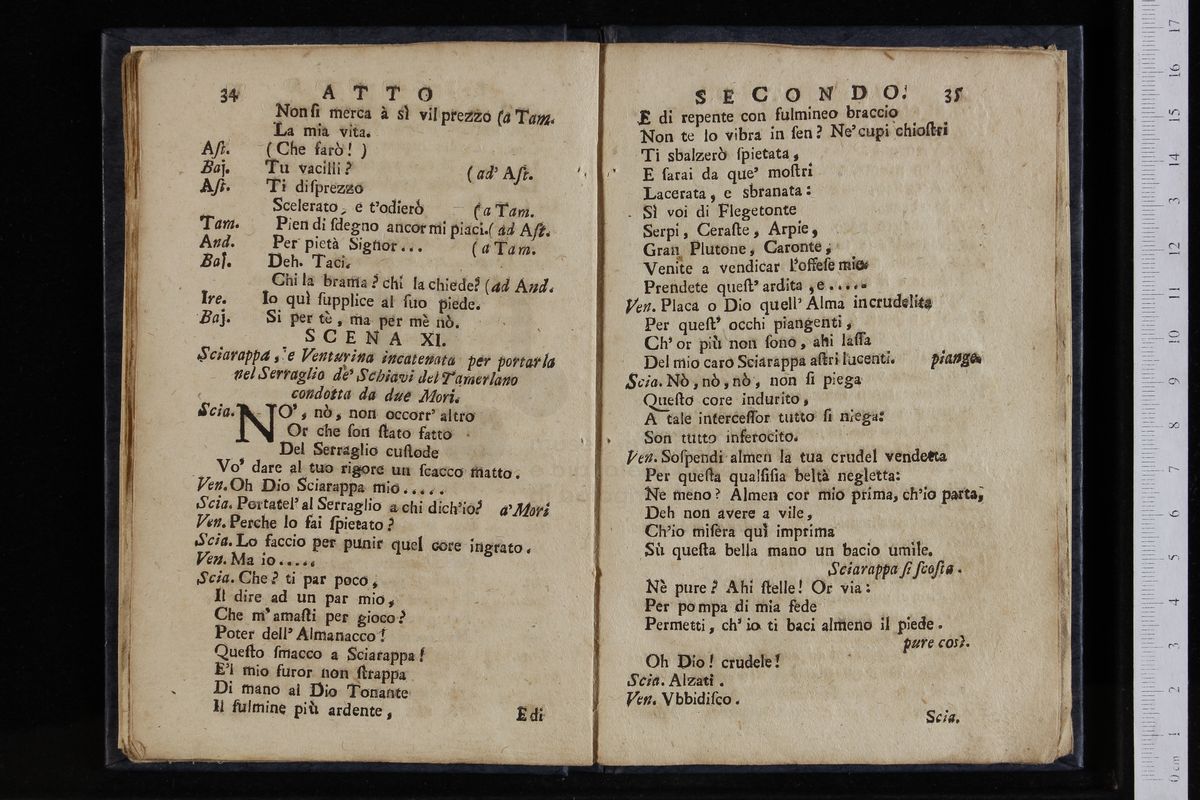 34 ATTO
Non ſi merca à sì vil prezzo (a Tam.
La mia vita.
Aſt. (Che farò! )
Baj. Tu vacilli? (ad' Aſt.
Aſt. Ti diſprezzo
Scelerato, e t'odierò (a Tam.
Tam. Pien di ſdegno ancor mi piaci.( ad Aſt.
And. Per pietà Signor... (a Tam.
Baj. Deh. Taci.
Chi la brama? chi la chiede? (ad And.
Ire. Io quì ſupplice al ſuo piede.
Baj. Si per tè, ma per mè nò.
SCENA XI.
Sciarappa, e Venturina incatenata per portarla
nel Serraglio de' Schiavi del Tamerlano
condotta da due Mori.
Scia. NO', nò, non occorr' altro
Or che ſon ſtato fatto
Del Serraglio cuſtode
Vo' dare al tuo rigore un ſcacco matto.
Ven. Oh Dio Sciarappa mio.....
Scia. Portatel' al Serraglio a chi dich'io? a' Mori
Ven. Perche lo fai ſpietato?
Scia. Lo faccio per punir quel core ingrato.
Ven. Ma io.....
Scia. Che? ti par poco,
Il dire ad un par mio,
Che m' amaſti per gioco?
Poter dell' Almanacco!
Queſto ſmacco a Sciarappa!
E'l mio furor non ſtrappa
Di mano al Dio Tonante
Il fulmine più ardente,
E di
SECONDO. 35
E di repente con fulmineo braccio
Non te lo vibra in ſen? Ne' cupi chioſtri
Ti sbalzerò ſpietata,
E ſarai da que' moſtri
Lacerata, e sbranata:
Sì voi di Flegetonte
Serpi, Ceraſte, Arpie,
Gran Plutone, Caronte,
Venite a vendicar l'offeſe mie
Prendete queſt' ardita, e.....
Ven. Placa o Dio quell' Alma incrudelita
Per queſt' occhi piangenti,
Ch' or più non ſono, ahi laſſa
Del mio caro Sciarappa aſtri lucenti. piange.
Scia. Nò, nò, nò, non ſi piega
Queſto core indurito,
A tale interceſſor tutto ſi niega:
Son tutto inferocito.
Ven. Soſpendi almen la tua crudel vendetta
Per queſta qualſiſia beltà negletta:
Ne meno? Almen cor mio prima, ch'io parta,
Deh non avere a vile,
Ch'io miſera quì imprima
Sù queſta bella mano un bacio umile.
Sciarappa ſi ſcoſta.
Nè pure? Ahi ſtelle! Or via:
Per pompa di mia fede
Permetti, ch' io ti baci almeno il piede.
pure così.
Oh Dio! crudele!
Scia. Alzati.
Ven. Vbbidiſco.
Scia.